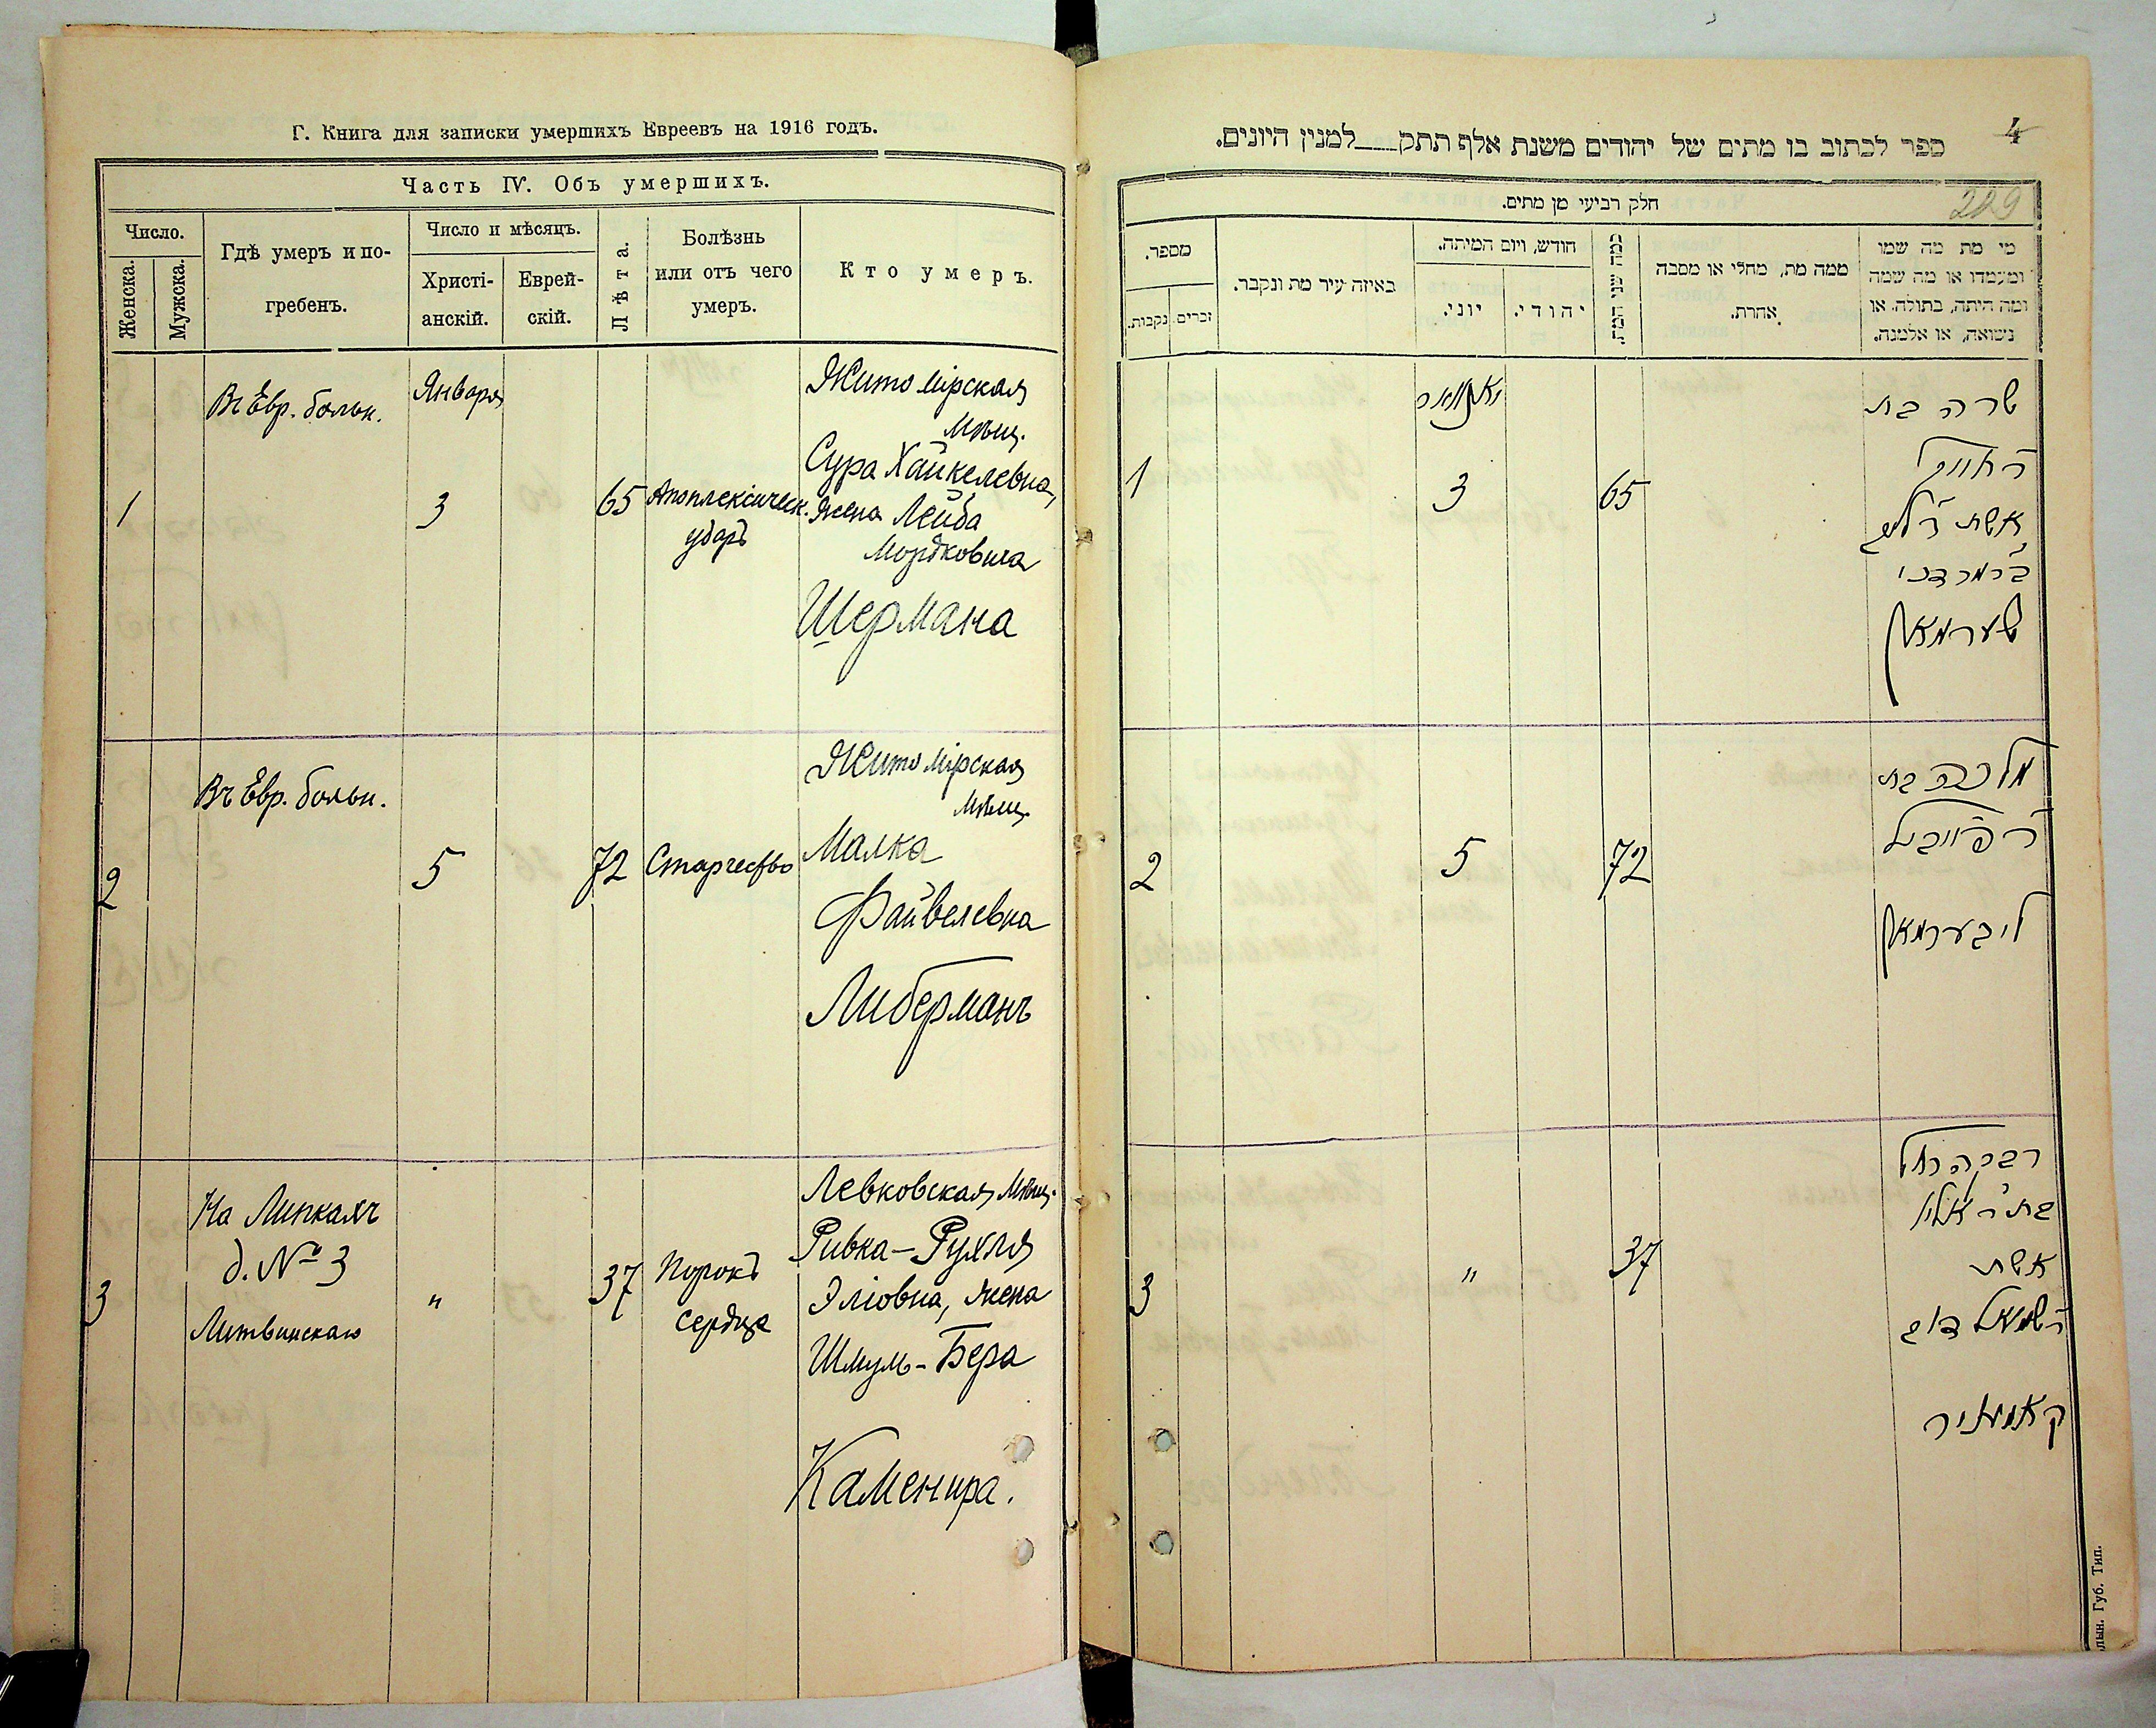 Г. Книга для записки умершихъ Евреевъ на 1916 годъ.
Часть IV. Объ умершихъ.
Число.
Женска.
Мужска.
Гдѣ умеръ и по-
гребенъ.
Число и мѣсяцъ.
Христі-
анскій.
Еврей-
скій.
Лѣта.
Болѣзнь
или отъ чего
умеръ.
Кто умеръ.
1
Въ Евр. больн.
Января
3
65
Апоплексическ.
ударъ
Житомірская
мѣщ.
Сура Хайкелевна,
жена Лейба
Мордковича
Шермана
2
Въ Евр. больн.
5
72
Старчество
Житомірская
мѣщ.
Малка
Файвелевна
Либерманъ
3
На Липкахъ
д. № 3
Литвинскаго
"
37
Порокъ
сердца
Левковская мѣщ.
Ривка-Рухля
Эліовна, жена
Шмуль-Бера
Каменира.
4
ספר לכתוב בו מתים של יהודים משנת אלף תתק___למנין היונים.
229
חלק רביעי מן מתים.
מספר.
זכרים.
נקבות.
באיזה עיר מת ונקבר.
חודש, ויום המיתה.
יוני.
יהודי.
כמה שני המת.
ממה מת, מחלי או מסבה
אחרת.
מי מת מה שמו
ומעמדו או מה שמה
ומה היתה, בתולה, או
נשואה, או אלמנה.
1
יאנואר
3
65
שרה בת
ר' חייקל
אשת ר' ליב
ב"ר מרדכי
שערמאן
2
5
72
מלכה בת
ר' פייביל
ליבערמאן
3
"
37
רבקה רחל
בת ר' אלי'
אשת
ר' שמואל דוב
קאמעניר
лын. Губ. Тип.